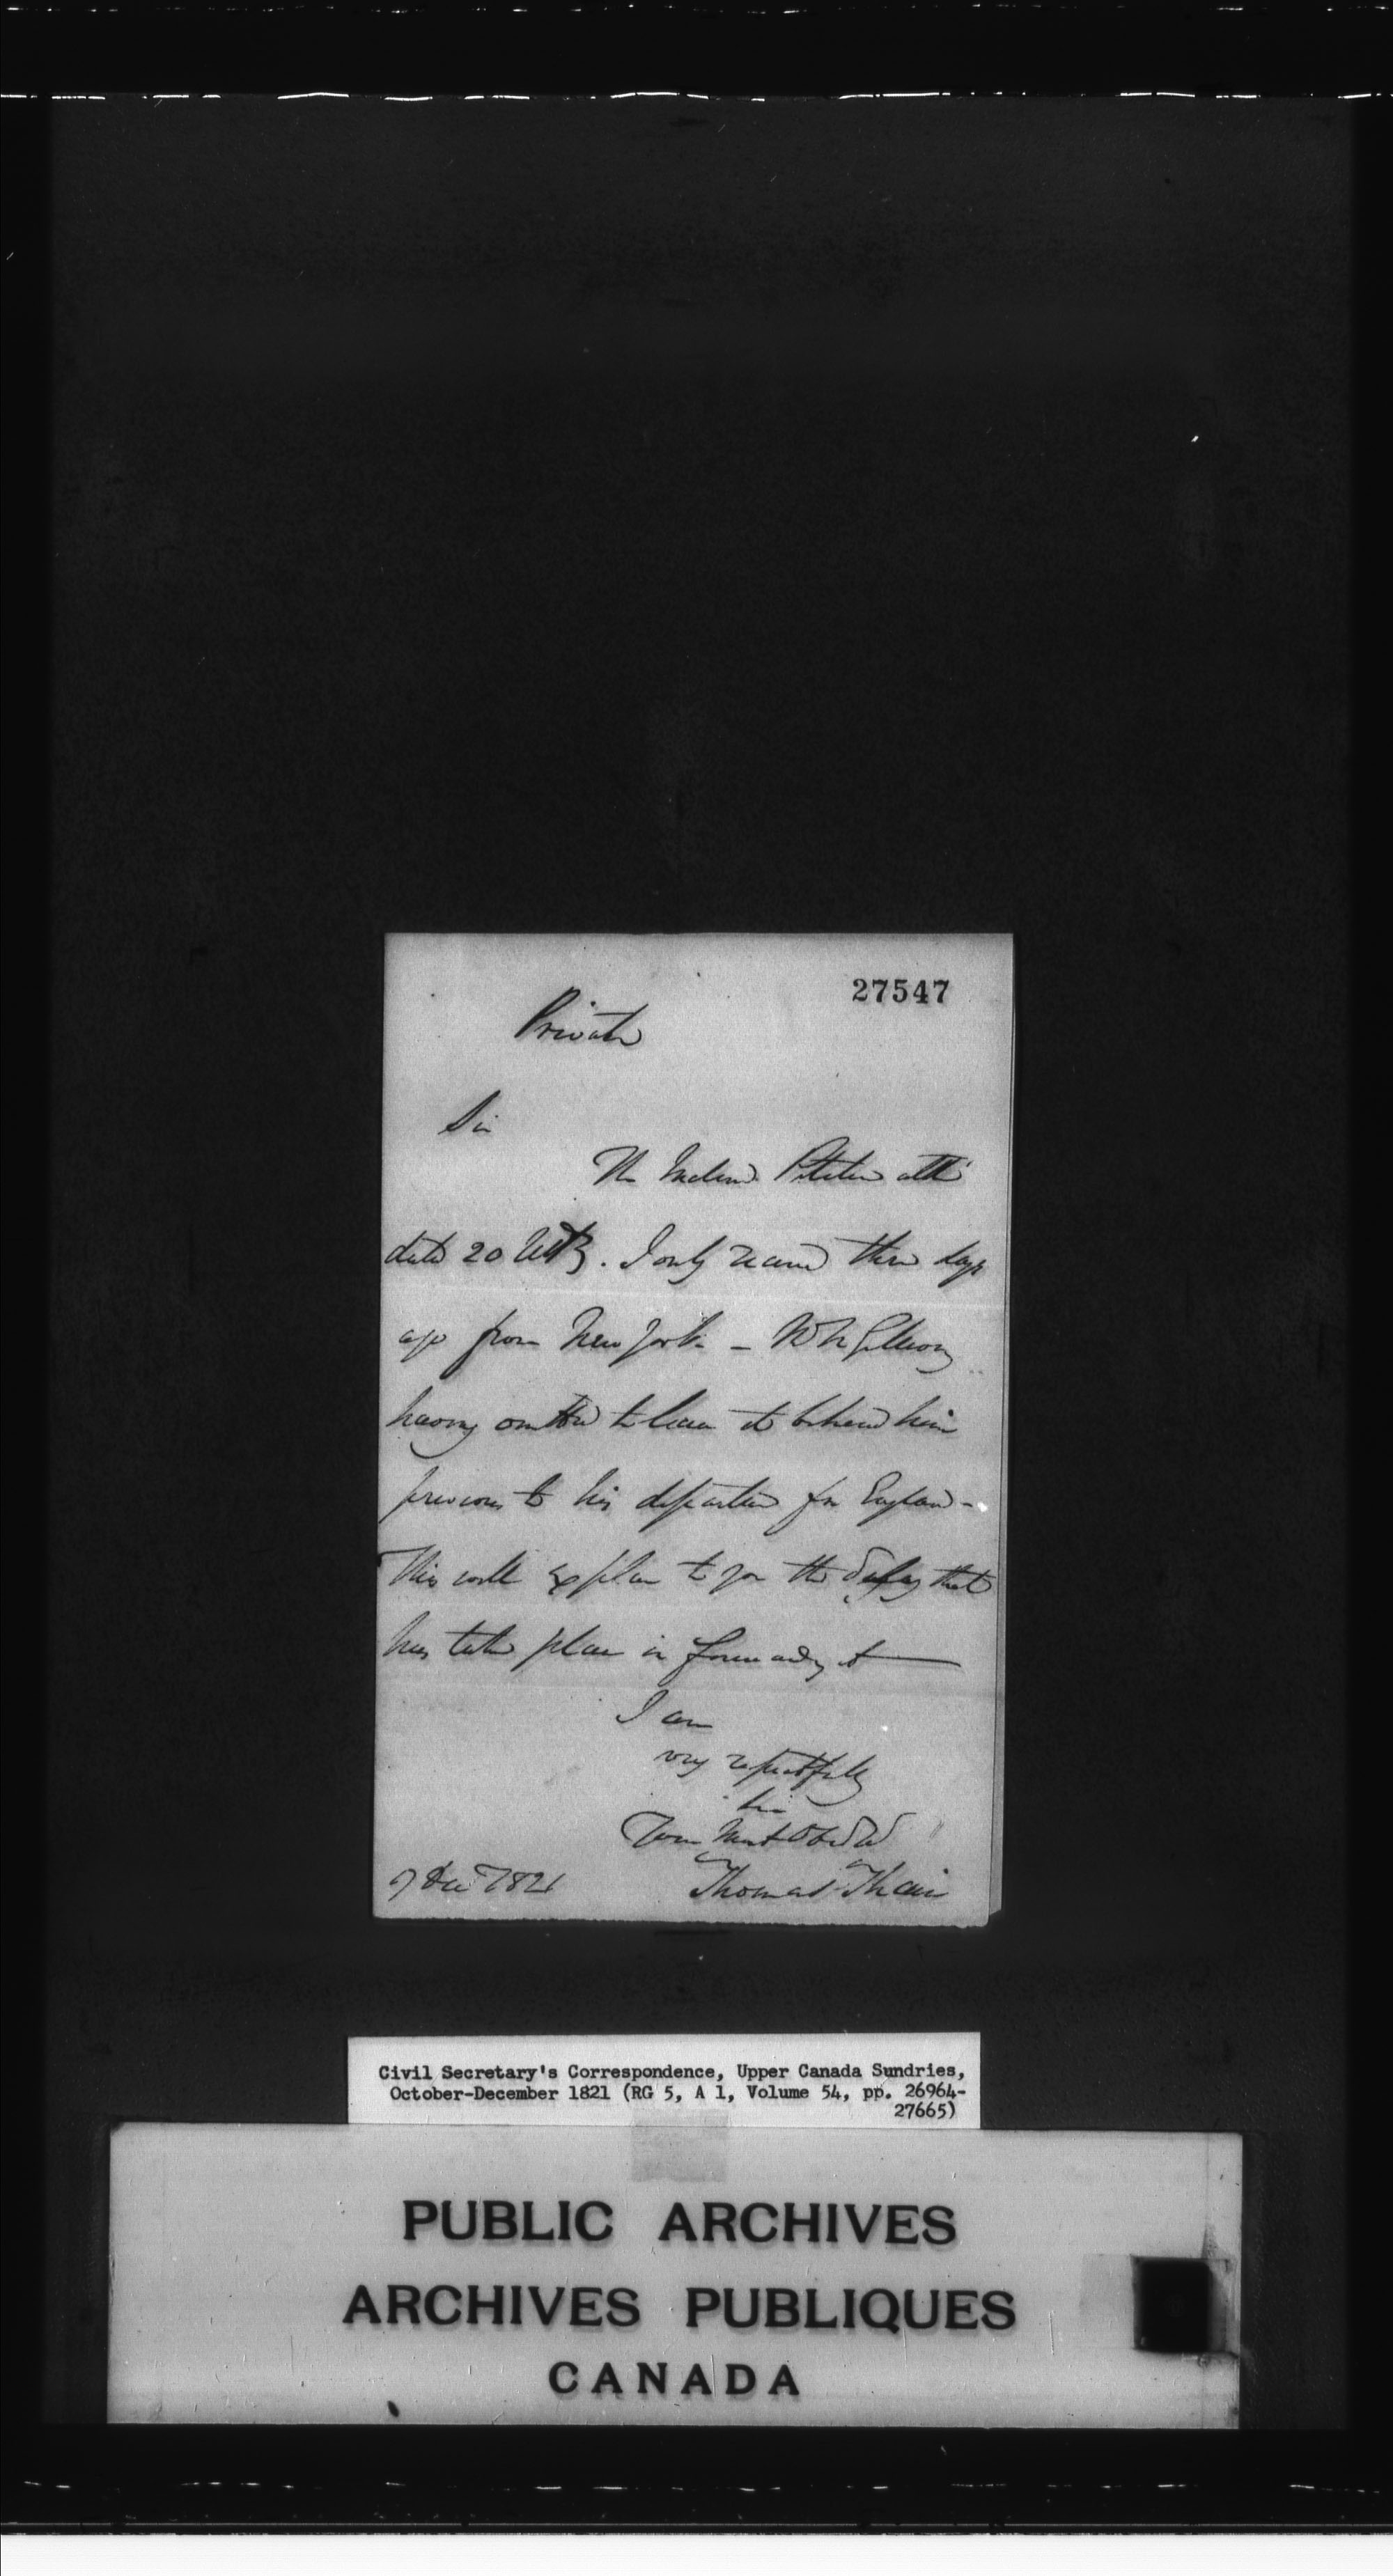 27547
Private
Sir
The Inclosed Petition altho'
dated 20 I only received three days
ago from New York – Mr
having omitted to leave it behind him
previous to his departure for England –
This will explain to you the delay that
has taken place in forwarding it
I am
very respectfully
Sir
Your Most Obed
7 Decr 1821 Thomas Thain
Civil Secretary's Correspondence, Upper Canada Sundries,
October-December 1821 (RG 5, A 1, Volume 54, pp. 26964-
27665)
PUBLIC ARCHIVES
ARCHIVES PUBLIQUES
CANADA